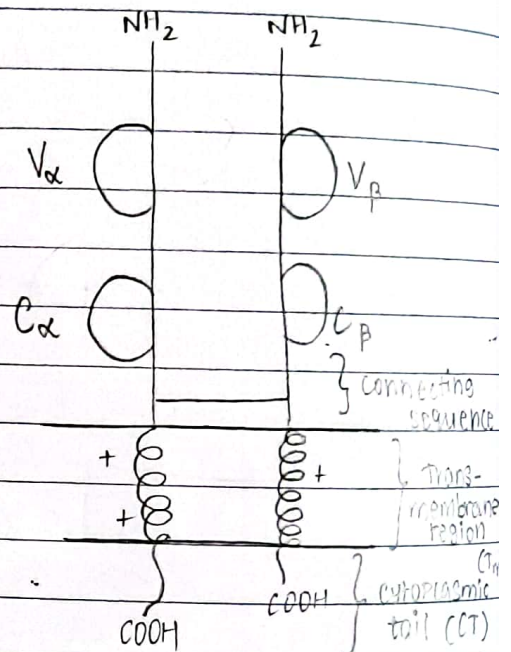 NH₂ NH₂
Vα Vβ
Cα Cβ
} connecting
sequence
+ + } Trans-
+ membrane
region
COOH } cytoplasmic
COOH tail (CT)